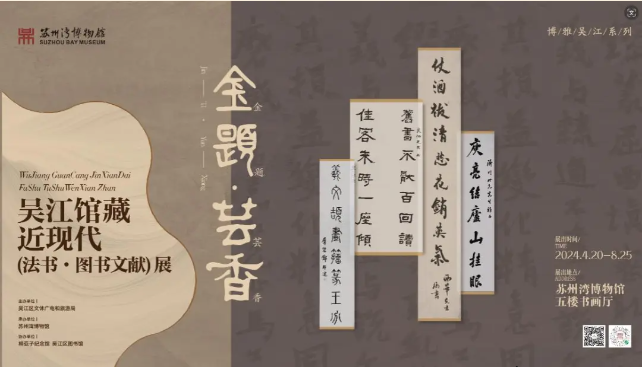 苏州湾博物馆
SUZHOU BAY MUSEUM
博/雅/吴/江/系/列
金題·芸香
金
题
芸
香
WuJiang GuanCang JinXianDai
FaShu TuShuWenXian Zhan
吴江馆藏
近现代
(法书·图书文献)展
主办单位|
吴江区文体广电和旅游局
承办单位|
苏州湾博物馆
协办单位|
杨臣子纪念馆 吴江区图书馆
仗酒祓清愁花銷英氣
舊書不厭百回讀
佳客來時一座傾
庾亮結廬山挂眼
羲文頡畫籀篆王冰
展出时间/
TIME
2024.4.20—8.25
展出地点/
苏州湾博物馆
五楼书画厅